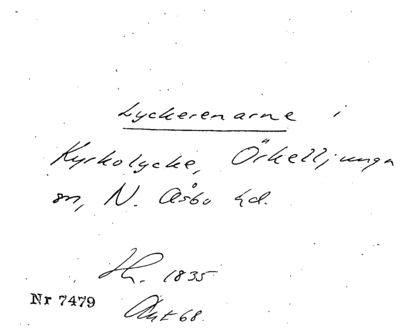 Lyckerenarne i
Kyrkolycke, Örkelljunga
sn, N. Åsbo hd.
Hr. 1835
Nr 7479
Akt 68.